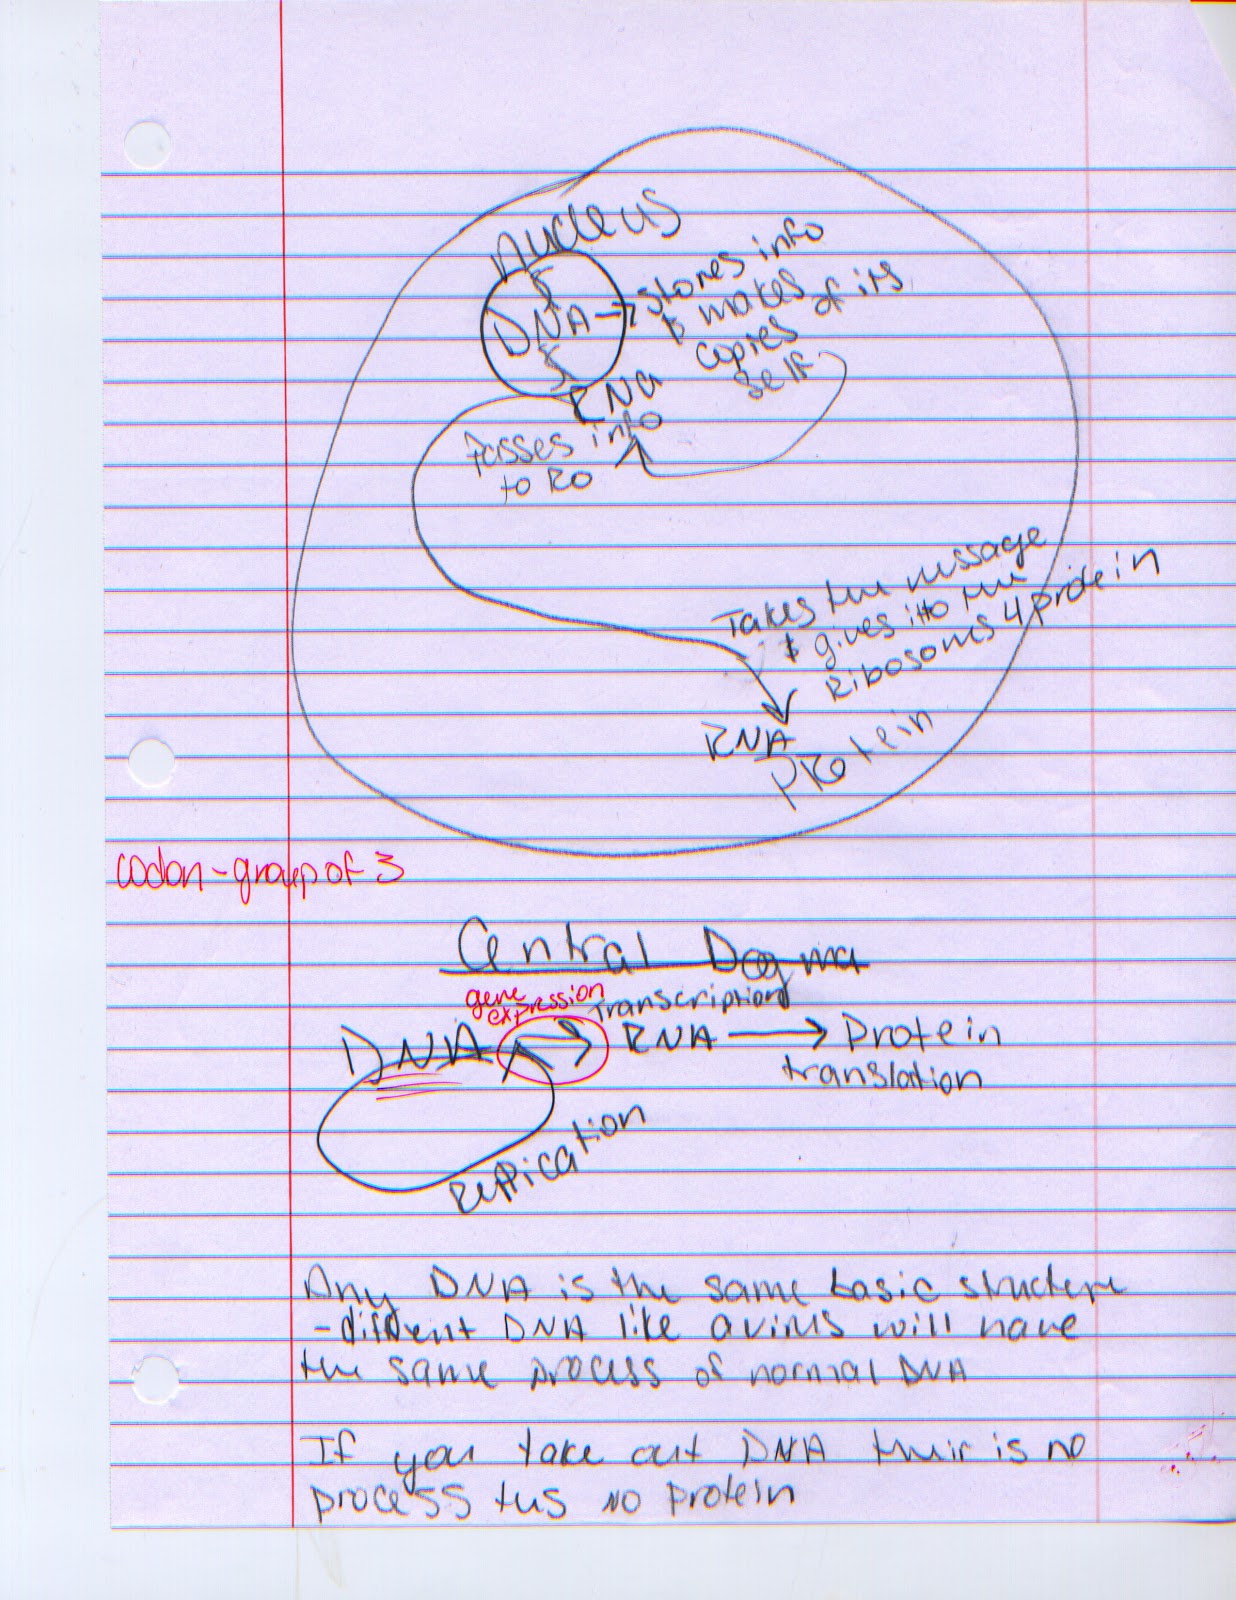 Nucleus
DNA → stores info
& makes
copies of its
self
RNA
Passes info
to Ro
Takes the message
& gives it to the
Ribosoms 4 protein
RNA
Protein
codon - group of 3
Central Dogma
gene
expression
Transcription
DNA → RNA → Protein
translation
Replication
Any DNA is the same basic structure
- different DNA like a virus will have
the same process of normal DNA
If you take out DNA their is no
process tus no protein